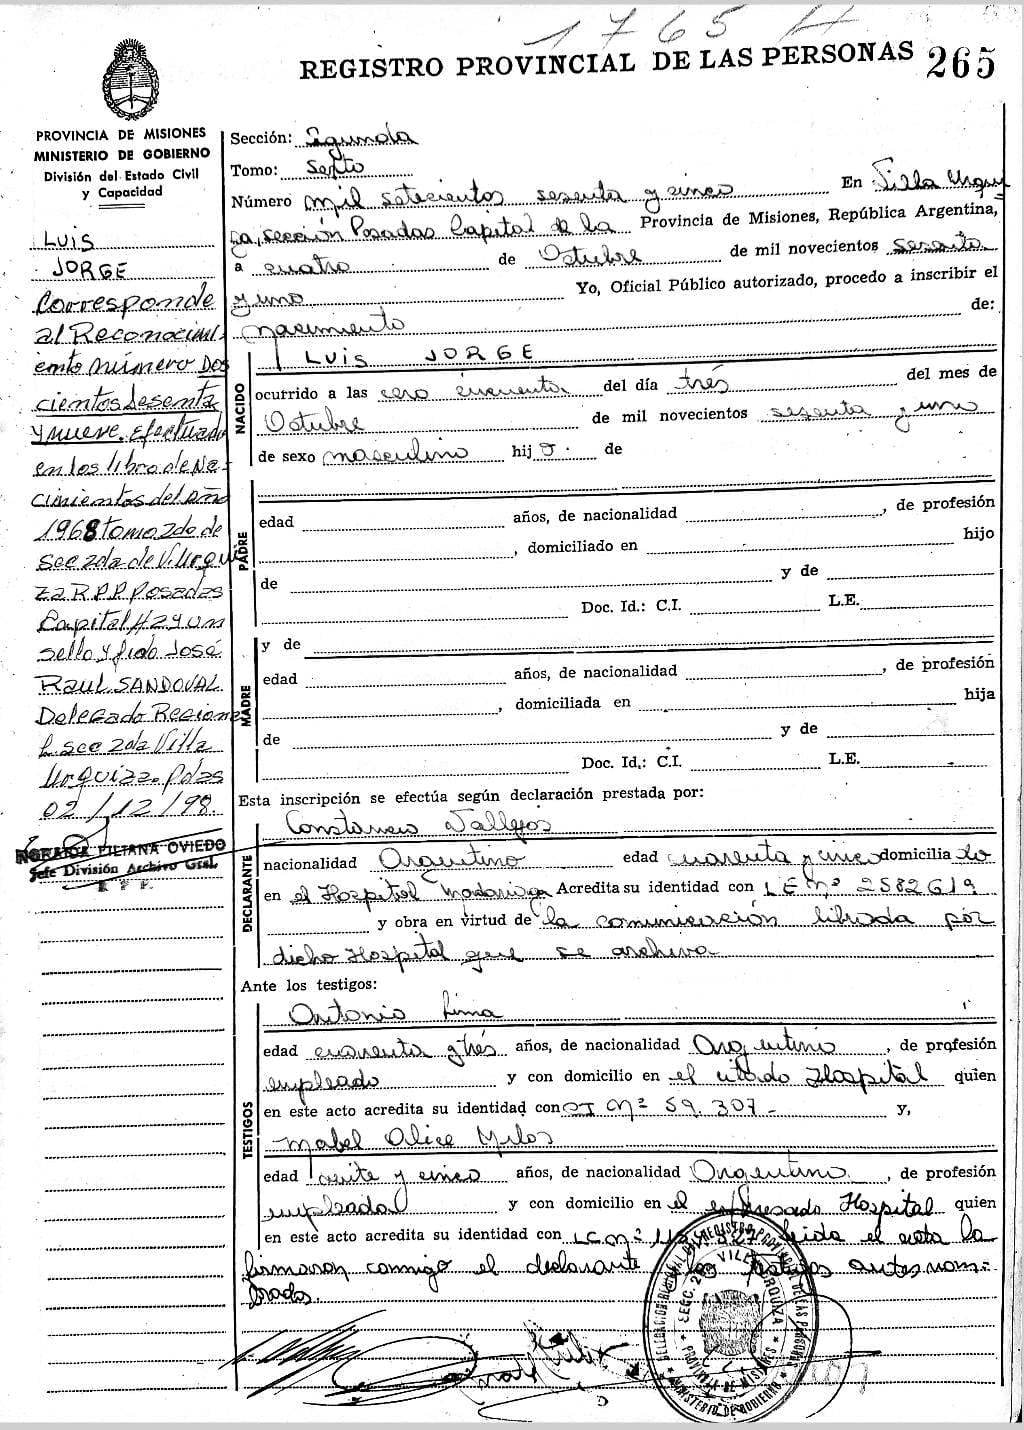 1765 H
REGISTRO PROVINCIAL DE LAS PERSONAS 265
PROVINCIA DE MISIONES
MINISTERIO DE GOBIERNO
División del Estado Civil
y Capacidad
LUIS
JORGE
Corresponde
al Reconocimi-
ento número Dos
cientos Sesenta
y nueve. Efectuado
en los libro de Na-
cimientos del año
1968 tomo 2do de
Sec 2da de V. Urqui
za R.P.P Posadas
Capital Hay un
sello y fido José
Raul SANDOVAL
Delegado Regiona
l Sec 2da Villa
Urquiza. Pdas
02/12/98.
LILIANA OVIEDO
Jefe División Archivo Gral.
R P P.
Sección: Segunda
Tomo: Sexto
Número mil setecientos sesenta y cinco En Villa Urqui
za, sección Posadas Capital de la Provincia de Misiones, República Argentina,
a cuatro de Octubre de mil novecientos sesenta
y uno Yo, Oficial Público autorizado, procedo a inscribir el
nacimiento de:
LUIS JORGE
NACIDO
ocurrido a las cero cincuenta del día trés del mes de
Octubre de mil novecientos sesenta y uno
de sexo masculino hijo. de
PADRE
edad años, de nacionalidad , de profesión
, domiciliado en hijo
de y de
Doc. Id.: C.I. L.E.
MADRE
y de
edad años, de nacionalidad , de profesión
, domiciliada en hija
de y de
Doc. Id.: C.I. L.E.
Esta inscripción se efectúa según declaración prestada por:
DECLARANTE
Constancio Vallejos
nacionalidad Argentino edad cuarenta y cinco domiciliado
en el Hospital Madariaga Acredita su identidad con LE nº 2582619
y obra en virtud de la comunicación librada por
dicho Hospital que se archiva
Ante los testigos:
TESTIGOS
Antonio Lima
edad cuarenta y trés años, de nacionalidad Argentino , de profesión
empleado y con domicilio en el citado Hospital quien
en este acto acredita su identidad con CI nº 59.307- y,
Mabel Alice
edad veinte y cinco años, de nacionalidad Argentina , de profesión
empleada y con domicilio en el expresado Hospital quien
en este acto acredita su identidad con LC nº leida el acta la
firmaron conmigo el declarante y los testigos antes nom-
brados.
DELEGACION REGIONAL DEL REGISTRO PROVINCIAL DE LAS PERSONAS
SECC. 2da VILLA URQUIZA
PROVINCIA DE MISIONES
MINISTERIO DE GOBIERNO